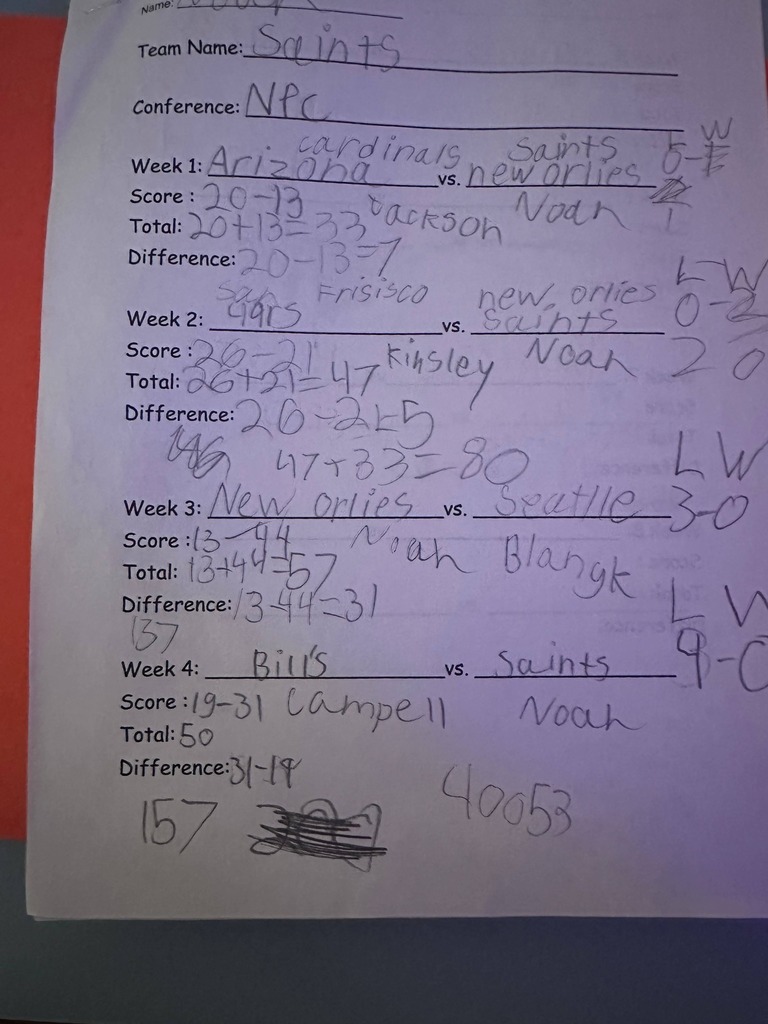 Name:
Team Name: Saints
Conference: NFC
cardinals Saints W
Week 1: Arizona vs. new orlies
Score : 20-13
Total: 20+13=33 Jackson Noah 1
Difference: 20-13=7
San Frisisco new orlies L W
Week 2: 49rs vs. Saints 0-2
Score : 26-21 Kinsley Noah 2 0
Total: 26+21=47
Difference: 26-21=5
47+33=80 L W
Week 3: New orlies vs. Seatlle 3-0
Score : 13-44 Noah Blangk
Total: 13+44=57
Difference: 13-44=31 L W
137
Week 4: Bill's vs. Saints 9-0
Score : 19-31 Campell Noah
Total: 50
Difference: 31-19
157 40053